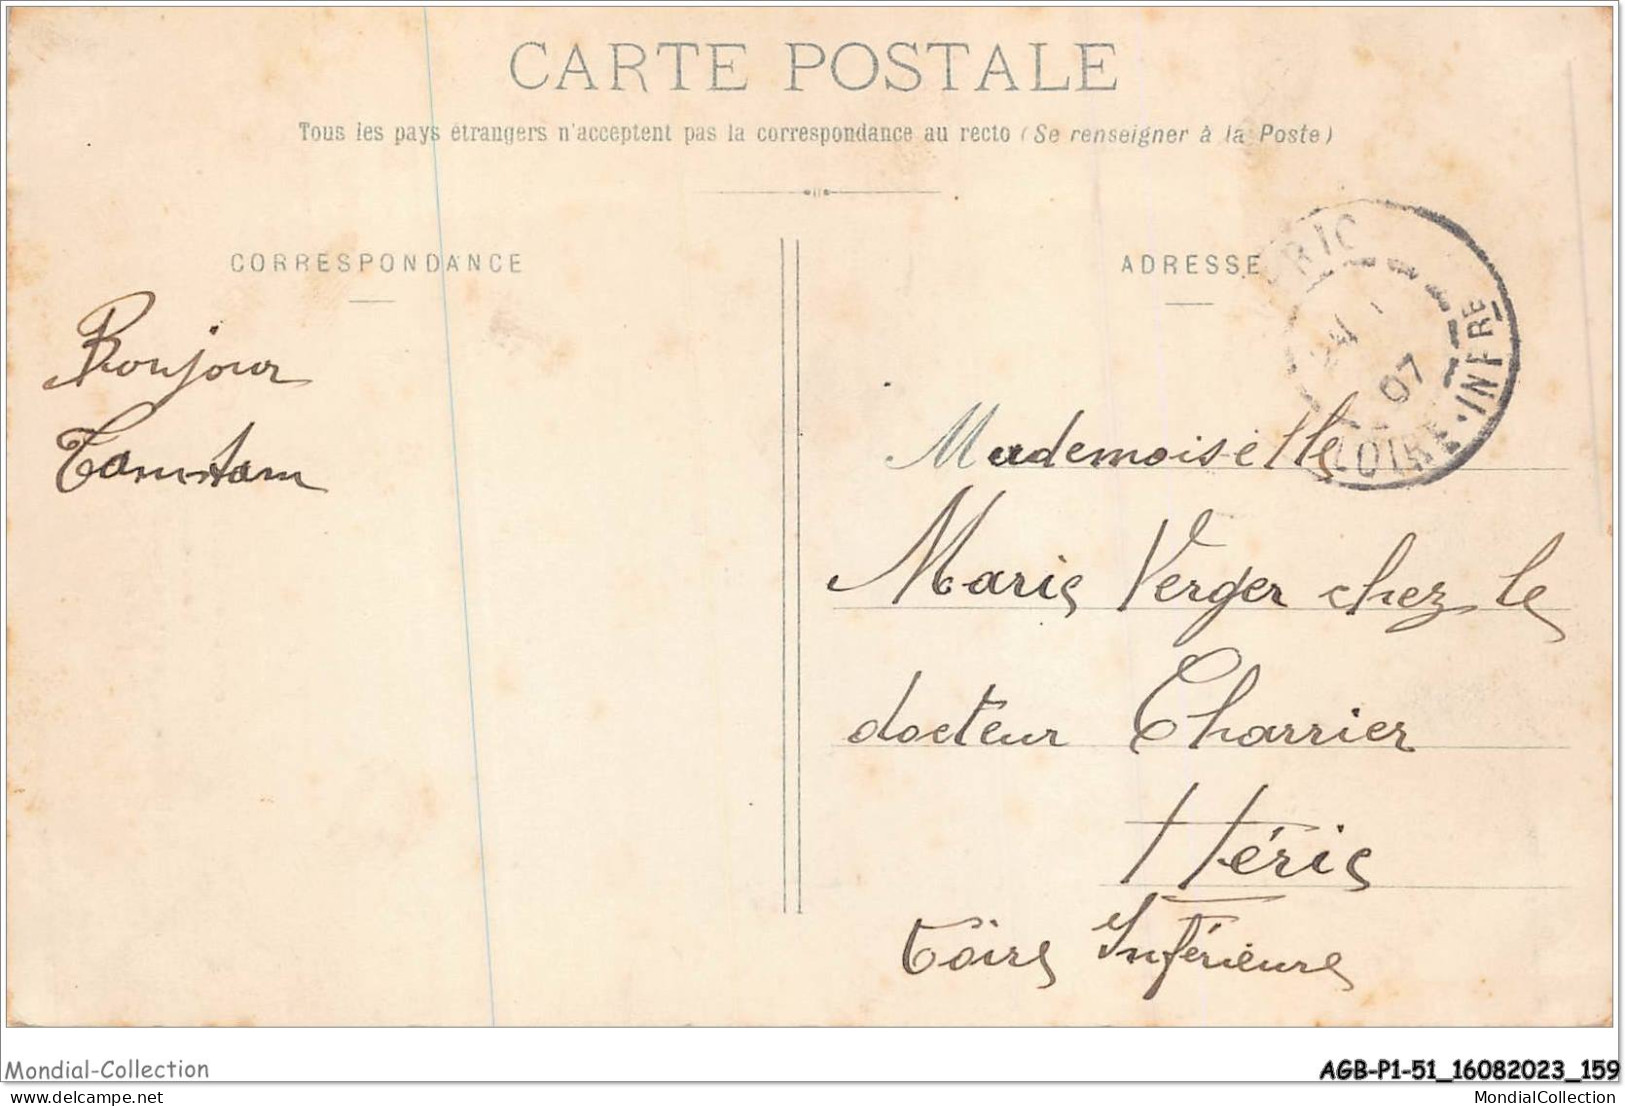 CARTE POSTALE
Tous les pays étrangers n'acceptent pas la correspondance au recto (Se renseigner à la Poste)
CORRESPONDANCE
ADRESSE
RIC
24
07
LOIRE-INFRE
Bonjour
Tam-tam
Mademoiselle
Marie Verger chez le
docteur Charrier
Héric
Loire Inférieure
Mondial-Collection
AGB-P1-51_16082023_159
delcampe.net
MondialCollection